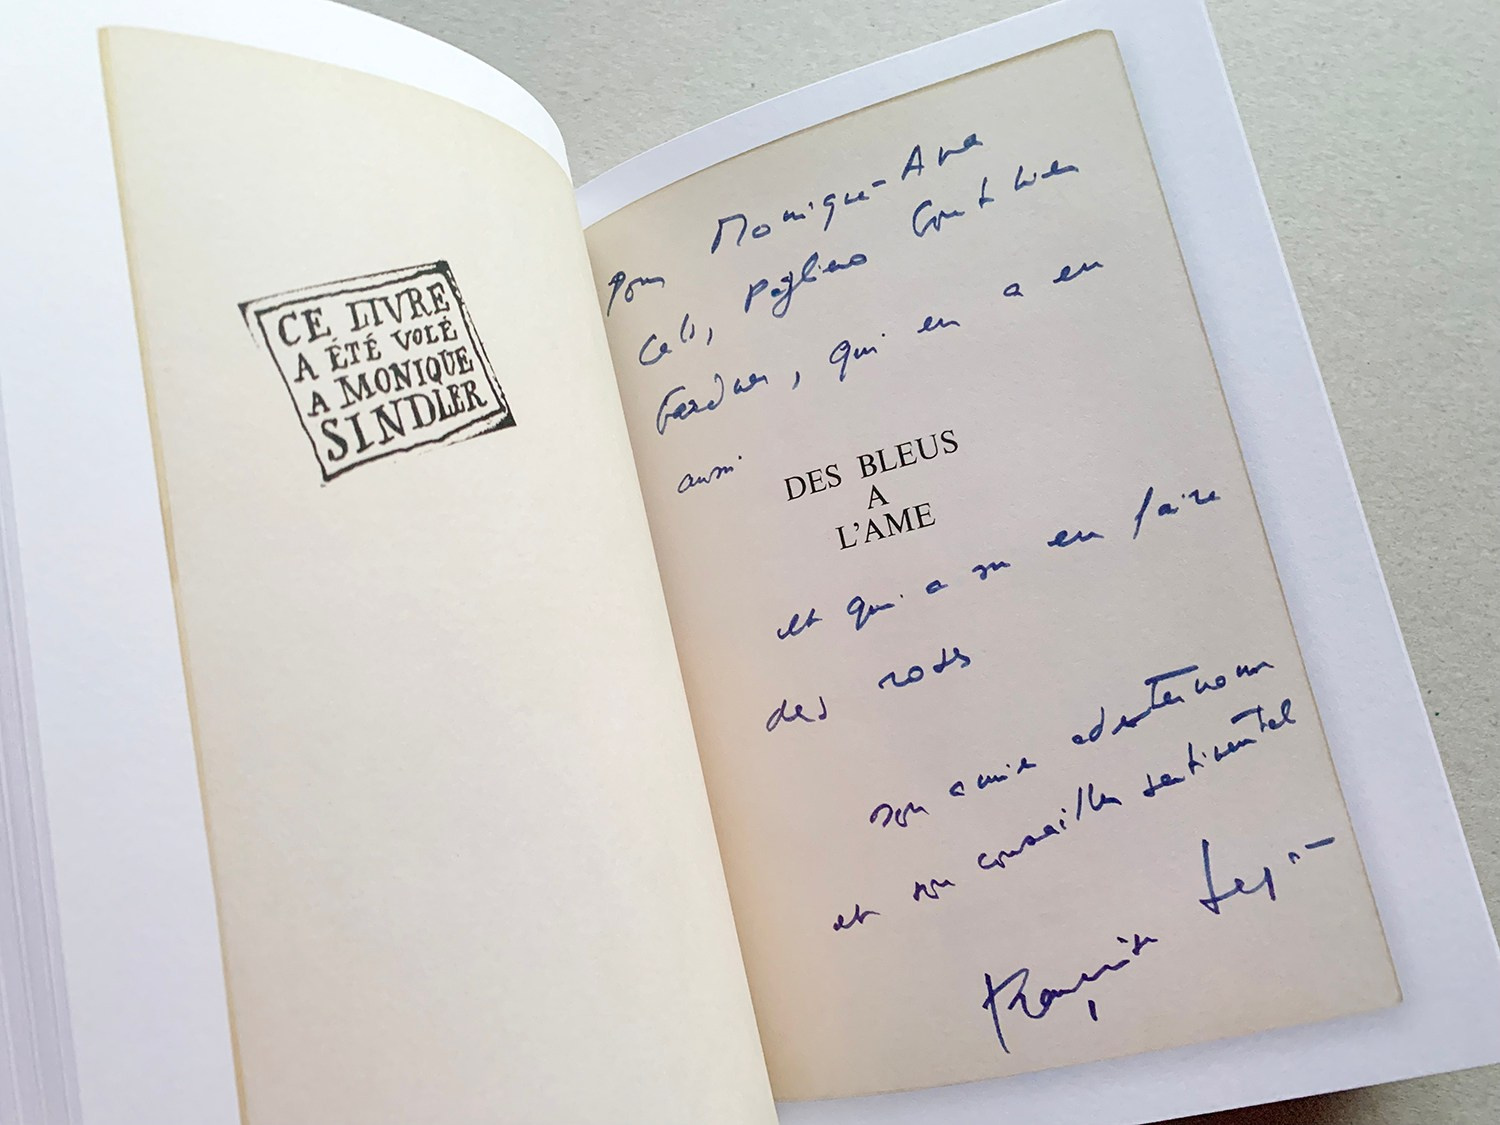 CE LIVRE
A ÉTÉ VOLÉ
A MONIQUE
SINDLER
Pour Monique-Ava
Pagliero
Gardner, qui en a eu
aussi
DES BLEUS
A
L'AME
et qui a su en faire
des
son amie
et son conseiller sentimental
Françoise Sagan